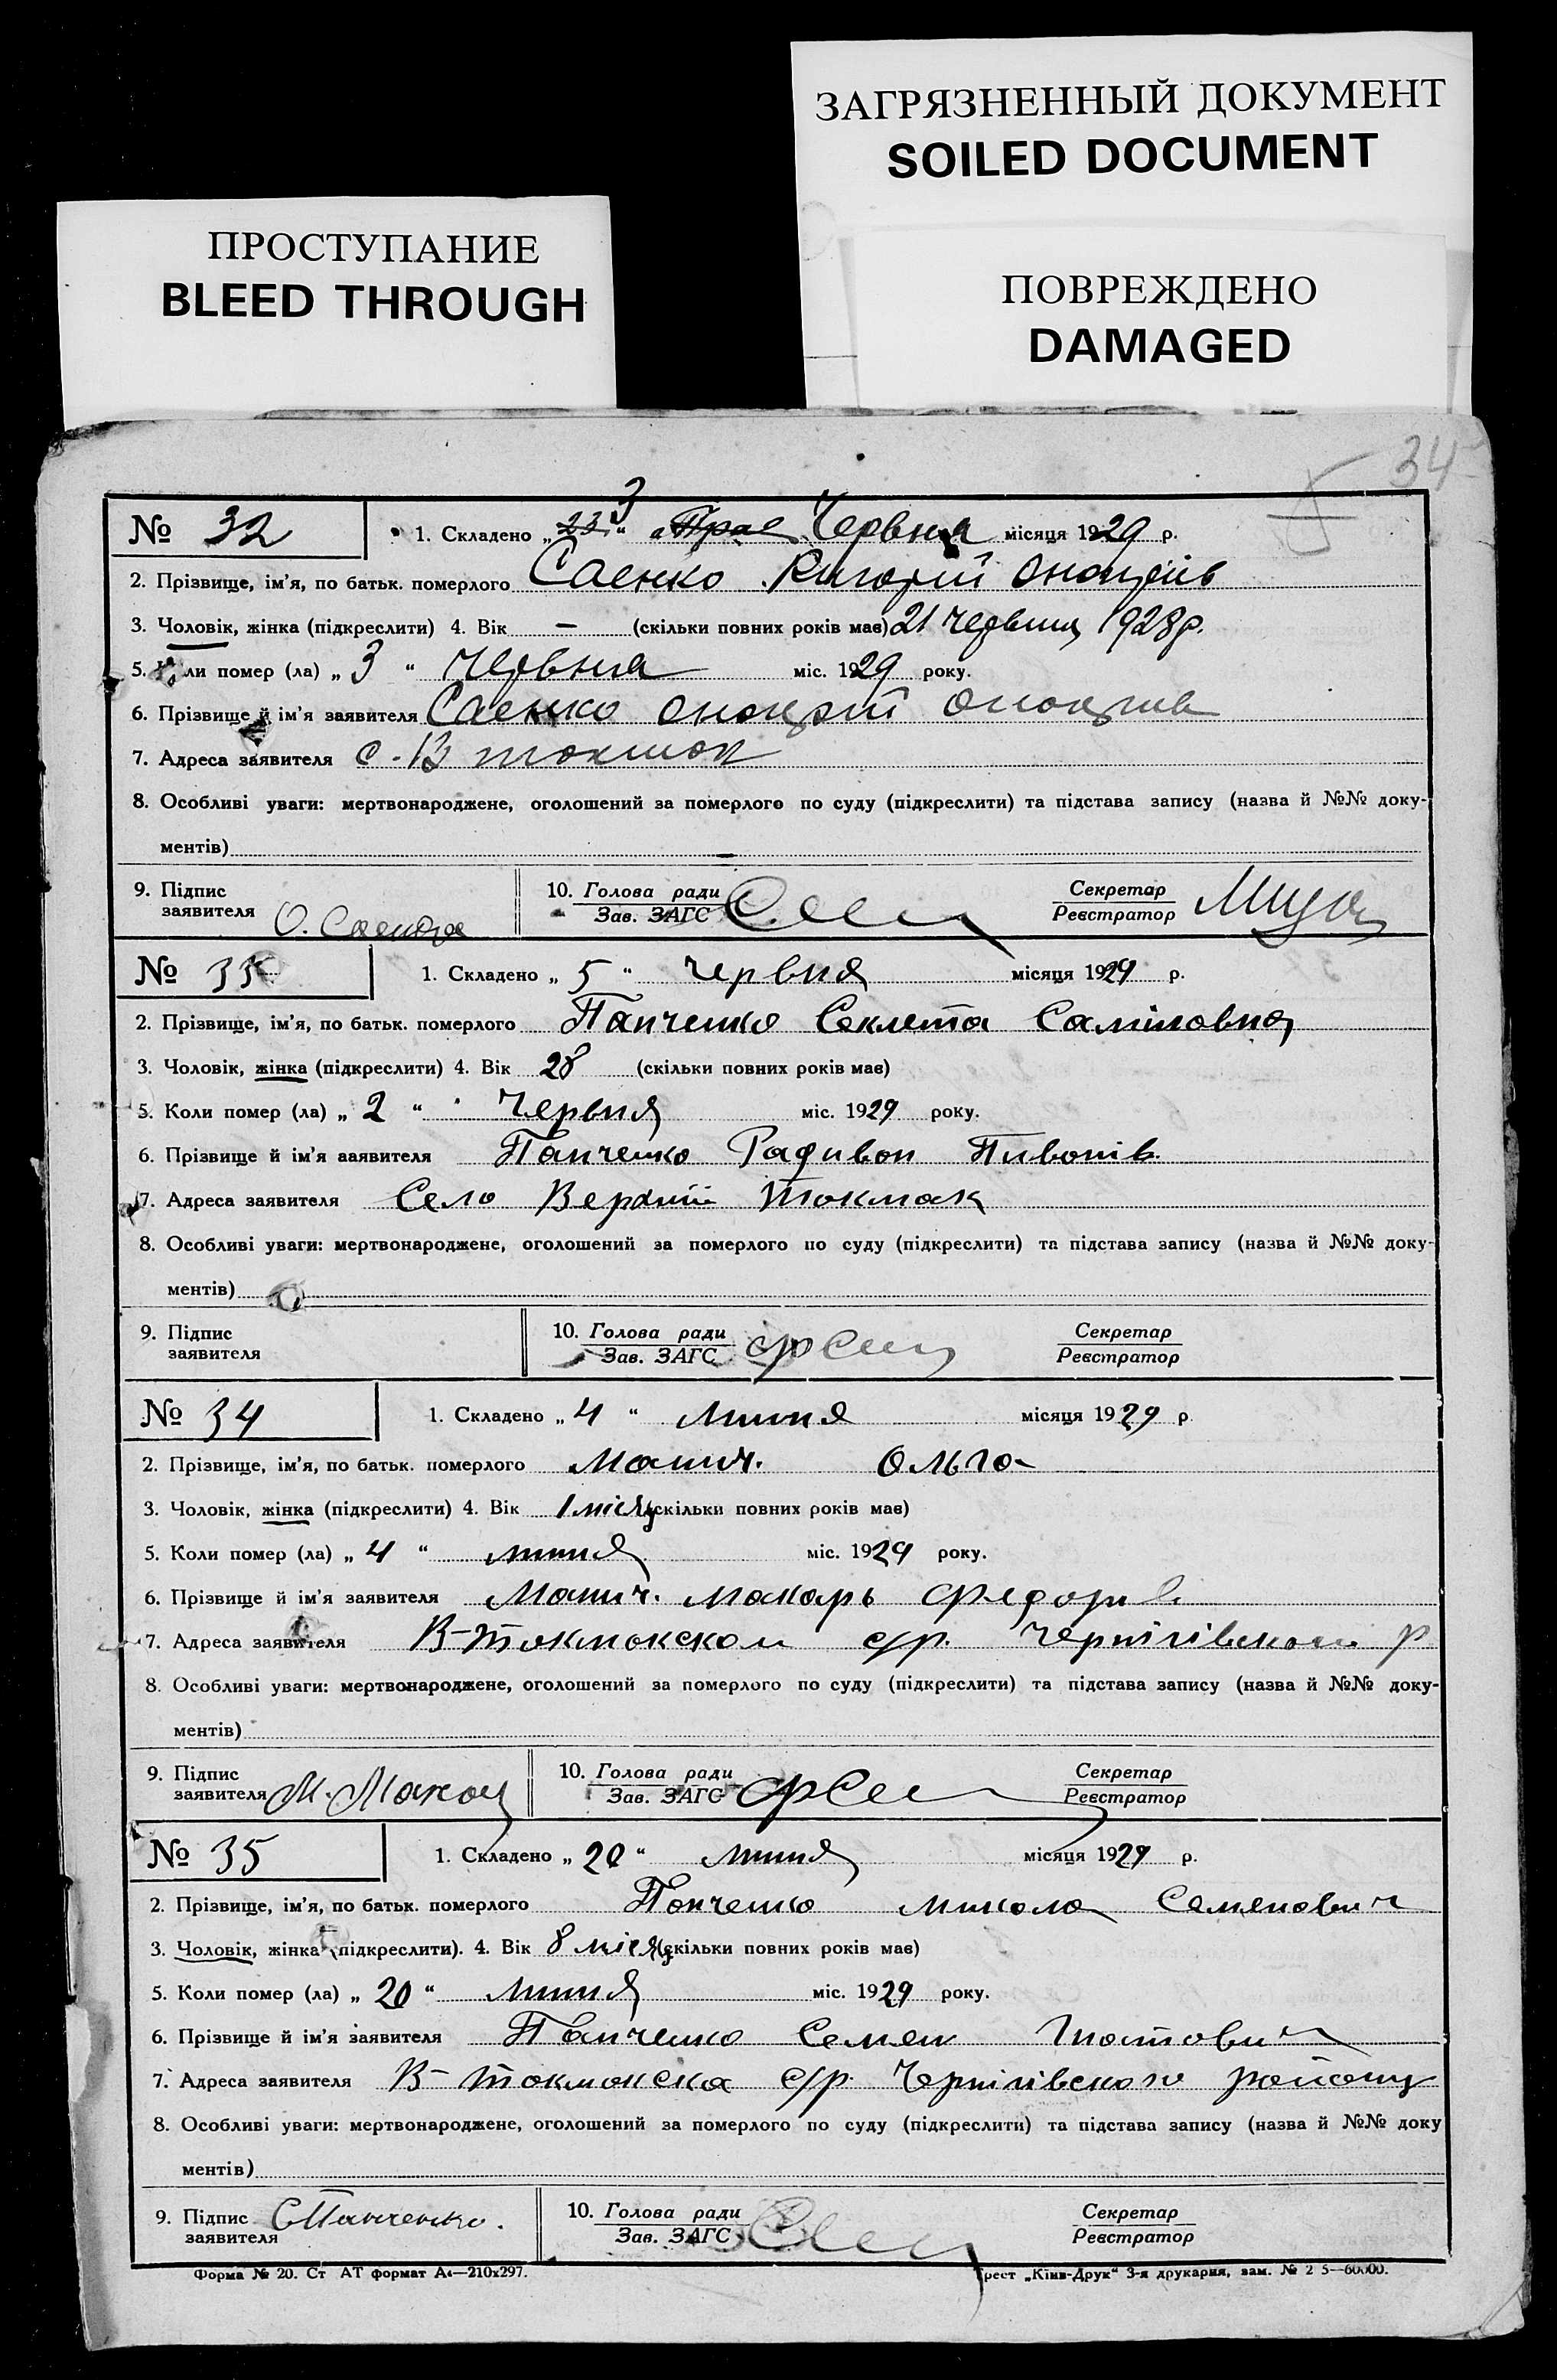 ЗАГРЯЗНЕННЫЙ ДОКУМЕНТ
SOILED DOCUMENT
ПРОСТУПАНИЕ
BLEED THROUGH
ПОВРЕЖДЕНО
DAMAGED
34
№ 32
1. Складено „ 3 “ Червня місяця 1929 р.
2. Прізвище, ім'я, по батьк. померлого Саенко
3. Чоловік, жінка (підкреслити) 4. Вік — (скільки повних років має) 21 Червня 1928 р.
5. Коли помер (ла) „ 3 “ Червня міс. 1929 року.
6. Прізвище й ім'я заявителя Саенко
7. Адреса заявителя с. В токмак
8. Особливі уваги: мертвонароджене, оголошений за померлого по суду (підкреслити) та підстава запису (назва й №№ доку-
ментів)
9. Підпис заявителя О. Саенко
10. Голова ради
Зав. ЗАГС
Секретар
Реєстратор
№ 33
1. Складено „ 5 “ червня місяця 1929 р.
2. Прізвище, ім'я, по батьк. померлого Панченко Секлета Саміловна
3. Чоловік, жінка (підкреслити) 4. Вік 28 (скільки повних років має)
5. Коли помер (ла) „ 2 “ Червня міс. 1929 року.
6. Прізвище й ім'я заявителя Панченко Радивон Пивонів
7. Адреса заявителя Село Верхній Токмак
8. Особливі уваги: мертвонароджене, оголошений за померлого по суду (підкреслити) та підстава запису (назва й №№ доку-
ментів)
9. Підпис заявителя
10. Голова ради
Зав. ЗАГС
Секретар
Реєстратор
№ 34
1. Складено „ 4 “ липня місяця 1929 р.
2. Прізвище, ім'я, по батьк. померлого Ольга
3. Чоловік, жінка (підкреслити) 4. Вік 1 місяц (скільки повних років має)
5. Коли помер (ла) „ 4 “ липня міс. 1929 року.
6. Прізвище й ім'я заявителя Макарь Федорів
7. Адреса заявителя В-Токмакскои с/р. Чернігівскои р
8. Особливі уваги: мертвонароджене, оголошений за померлого по суду (підкреслити) та підстава запису (назва й №№ доку-
ментів)
9. Підпис заявителя М.
10. Голова ради
Зав. ЗАГС
Секретар
Реєстратор
№ 35
1. Складено „ 20 “ липня місяця 1929 р.
2. Прізвище, ім'я, по батьк. померлого Панченко Микола Семенович
3. Чоловік, жінка (підкреслити). 4. Вік 8 місяц (скільки повних років має)
5. Коли помер (ла) „ 20 “ липня міс. 1929 року.
6. Прізвище й ім'я заявителя Панченко Семен
7. Адреса заявителя В-Токмакска с/р. Чернігівского району
8. Особливі уваги: мертвонароджене, оголошений за померлого по суду (підкреслити) та підстава запису (назва й №№ доку
ментів)
9. Підпис заявителя С Панченко.
10. Голова ради
Зав. ЗАГС
Секретар
Реєстратор
Форма № 20. Ст АТ формат А4—210х297.
рест „Київ-Друк“ 3-я друкарня, зам. № 2 5—60000.